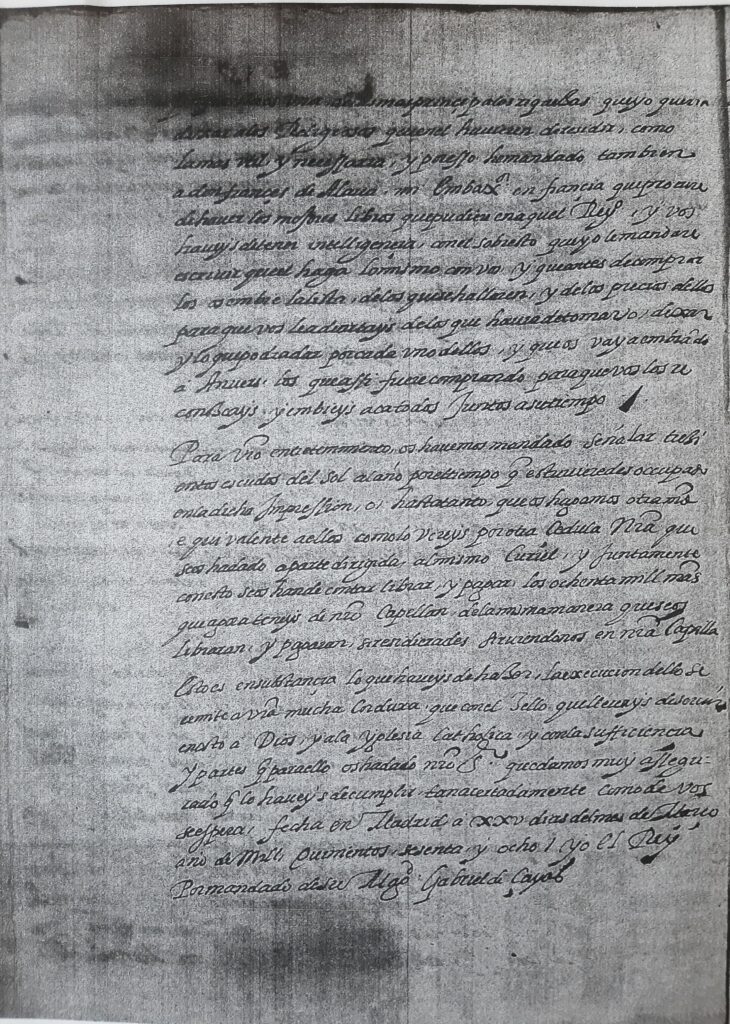 una de las mas principales riquezas que yo querria
dexar a los Religiosos que en el huuieren de residir, como
la mas util y necessaria, y por esso he mandado tambien
a don frances de Alaua mi Embaxor en francia que procure
de hauer los mejores libros que pudiere en aquel Reyno, y vos
haueys de tener intelligencia con el sobre esto que yo le mandare
escriuir que el haga lo mismo con vos y que antes de comprar
los os embie la lista de los que se hallaren, y de los precios dellos
para que vos le aduirtays de los que haura de tomar o dexar
y lo que podra dar por cada uno dellos, y que os vaya embiando
a Anuers los que assi fuere comprando para que vos los re
conozcays y embieys aca todos Juntos a su tiempo
Para vro entretenimiento os hauemos mandado señalar trezi
entos escudos del Sol al año por el tiempo q estuuieredes occupado
en la dicha Impression, o, hasta tanto que os hagamos otra mrd
equiualente a ellos como lo vereys por otra Cedula Nra que
se os ha dado aparte dirigida al mismo Curiel, y Juntamente
con esto se os han de contar librar, y pagar los ochenta mill mrs
que agora teneys de nro Capellan de la misma manera que se os
libraran y pagaran, si residierades siruiendonos en nra Capilla
Esto es en substançia lo que haueys de hazer, la execucion dello se
remite a vra mucha Cordura, que con el zello que lleuays de seruir
en esto a Dios y a la yglesia Catholica y con la sufficiencia
y partes q para ello os ha dado nro Sr quedamos muy assegu
rado q lo haueys de cumplir tan acertadamente como de vos
se espera, fecha en Madrid a xxv dias del mes de Março
año de Mill, quinientos, sesenta, y ocho / yo el Rey
Por mandado de su Magd Gabriel de Çayas